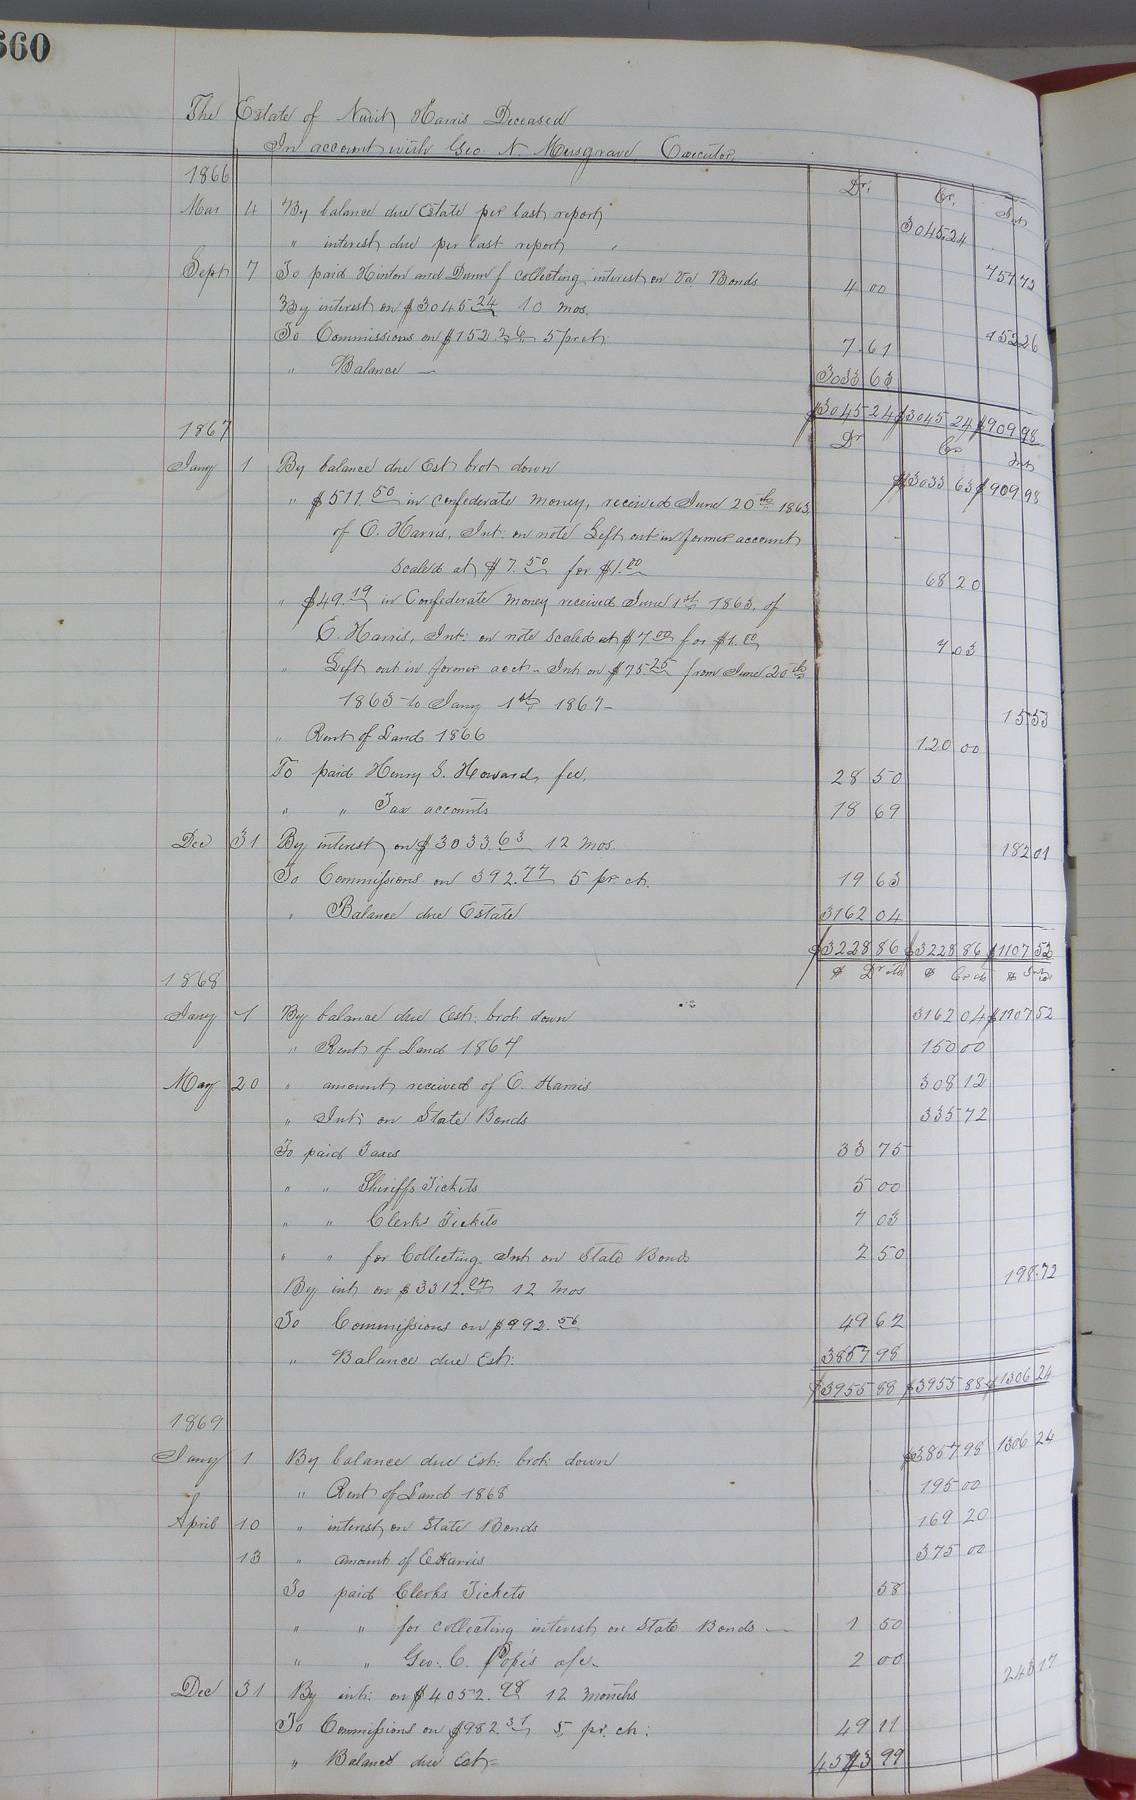 660
The Estate of Harris Deceased
In account with Geo N. Musgrave Executor
1866 Dr. Cr. Int
Mar 4 By balance due Estate per last report 3045.24
" interest due per last report 757 72
Sept 7 To paid Hinton and Dunn f collecting interest on Va. Bonds 4 00
By interest on $3045.24 10 mos. 152 26
To Commissions on $152.26 5 pr ct 7.61
" Balance — 3033 63
$3045 24 $3045 24 $909 98
1867 Dr Cr Int
Jany 1 By balance due Est brot down $3033 63 $909 98
" $511.50 in confederate money, received June 20th 1863
of C. Harris, Int. on note Left out in former account
scaled at $7.50 for $1.00 68 20
" $49.19 in Confederate money received June 1st 1863. of
C. Harris, Int: on note scaled at $7.00 for $1.00 7 03
" Left out in former acct - Int on $75.25 from June 20th
1863 to Jany 1st 1867 - 15 53
" Rent of Land 1866 120 00
To paid Henry S. Howard, fee, 28 50
" " Tax accounts 18 69
Dec 31 By interest on $3033.63 12 mos. 182 01
To Commissions on 392.77 5 pr. ct. 19 63
" Balance due Estate 3162 04
$3228 86 $3228 86 $1107 52
1868 $ Dr cts $ Cr cts $ Int cts
Jany 1 By balance due Est: brot down 3162 04 $1107 52
" Rent of Land 1867 150 00
May 20 " amount received of C. Harris 308 12
" Int: on State Bonds 335 72
To paid Taxes 33 75
" " Sheriffs Tickets 5 00
" " Clerks Tickets 7 03
" " for Collecting Int on State Bonds 2 50
By int on $3312.04 12 mos 198.72
To Commissions on $992.56 49 62
" Balance due Est: 3857 98
$3955 88 $3955 88 $1306 24
1869
Jany 1 By balance due Est: brot: down $3857 98 1306 24
" Rent of Land 1868 195 00
April 10 " interest on State Bonds 169 20
13 " amount of C Harris 375 00
To paid Clerks Tickets 58
" " for collecting interest on State Bonds — 1 50
" " Geo. C. Pope's a/c - 2 00
Dec 31 By int: on $4052.98 12 months 243 17
To Commissions on $982.37 5, pr. ct: 49 11
" Balance due Est= 99